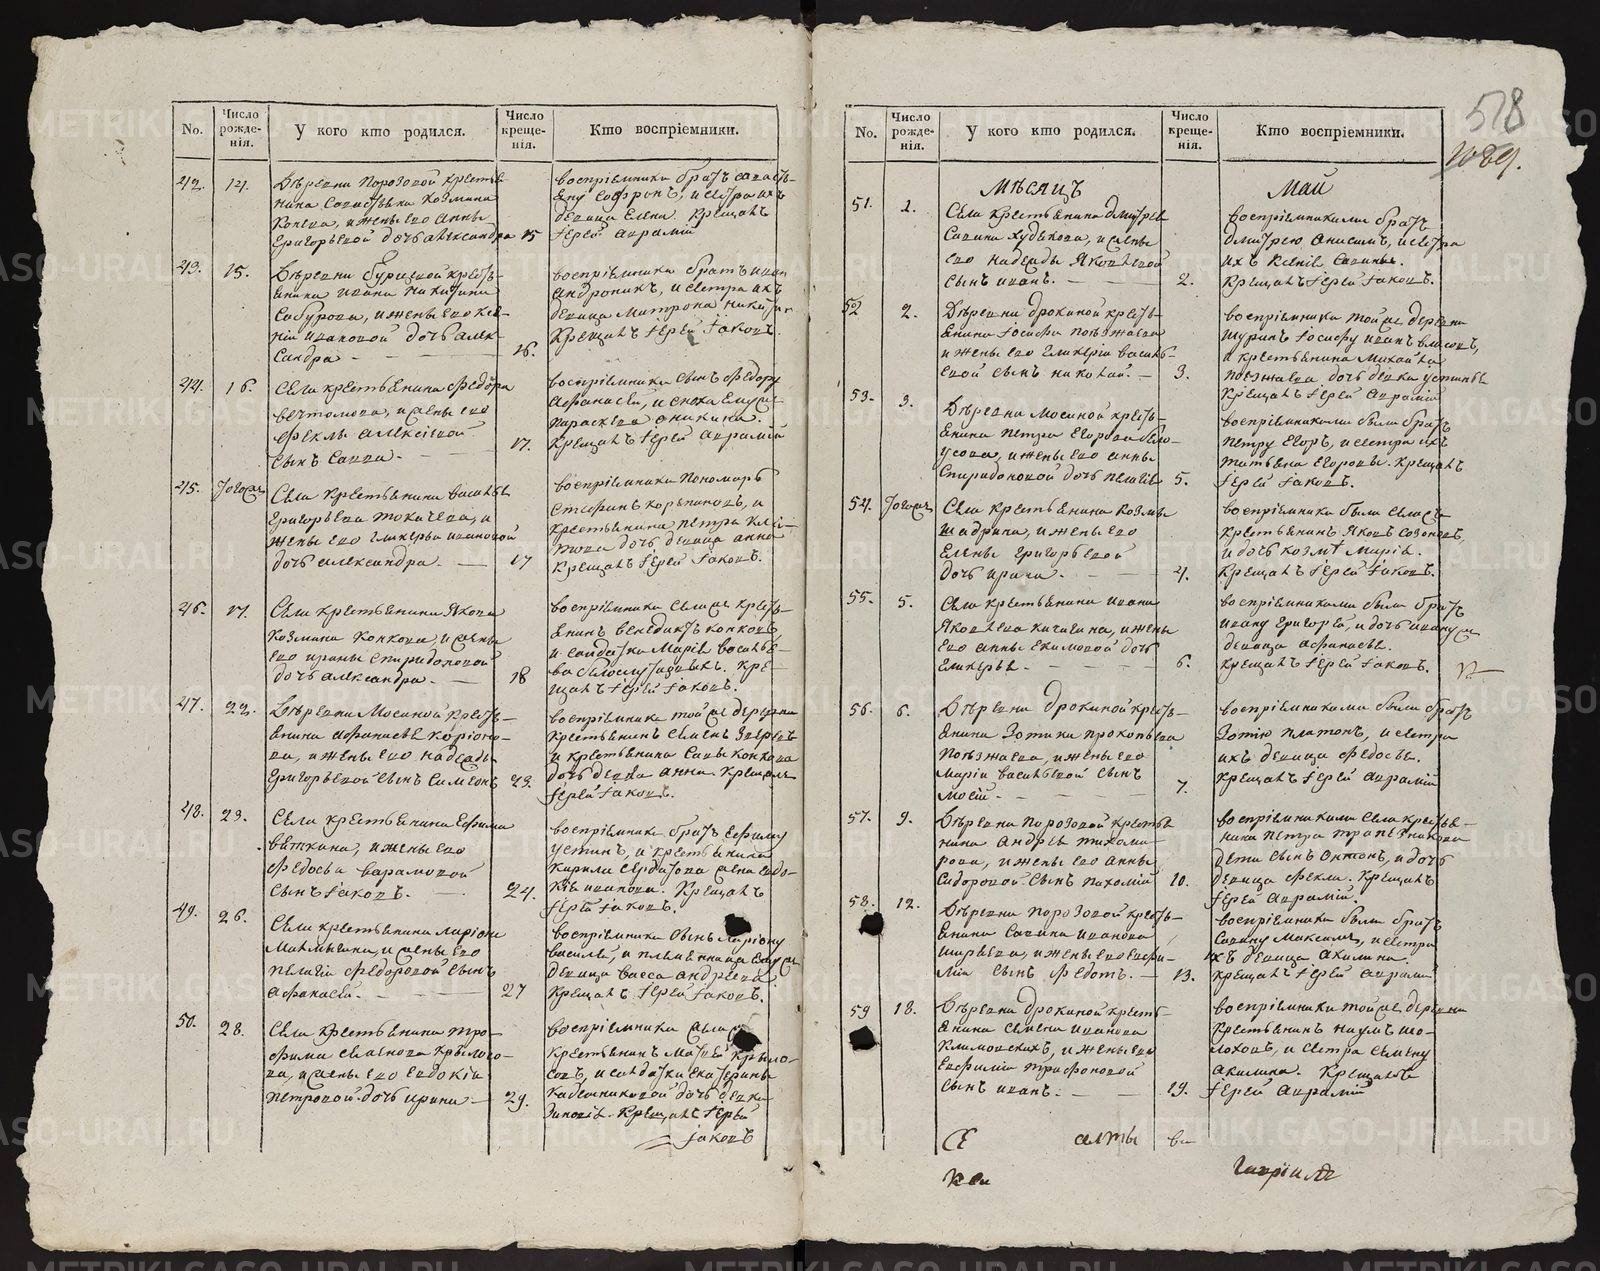 No.
Число рожде-нія.
У кого кто родился.
Число креще-нія.
Кто воспріемники.
42.
14.
Деревни Порозовой кресть
янина Савастьяна Козмина
Конева, и жены его Анны
Григорьевой дочь александра
15
воспріемники братъ саваст-
яну Софронъ, и сестра ихъ
девица Елена. Крещалъ
Іерей Авраамій
43.
15.
Деревни Бурцевой кресть-
янина Ивана Никитина
Сабурова, и жены его Ксе-
ніи Ивановой дочь алек-
сандра
16.
воспріемники братъ иван
андроникъ, и сестра ихъ
девица Матрона Никитин
Крещалъ Іерей Іаковъ.
44.
16.
Села крестьянина Федора
Вечтомова, и жены его
Феклы алексіевой
сынъ Савва.
17.
воспріемники сынъ Федору
Афанасей, и сноха
Параскева Аникина.
Крещалъ Іерей Авраамій
45.
Села крестьянина василья
Григорьева Токачева, и
жены его Гликерьи ивановой
дочь александра.
17
воспріемники Пономарь
Стефанъ корепановъ, и
крестьянина Петра
дочь девица анна
Крещалъ Іерей Іаковъ.
46.
17.
Села крестьянина Якова
Козмина Конкова, и жены
его ирины Спиридоновой
дочь александра.
18
воспріемники села кресть-
янинъ Венедиктъ конковъ
и солдатка Марія Василье-
ва Кре-
щалъ Іерей Іаковъ.
47.
22.
Деревни Мосиной кресть-
янина афанасья Каріоно-
ва, и жены его надежды
Григорьевой сынъ Симеонъ
23.
воспріемники той же деревни
крестьянинъ семенъ Зверевъ
и крестьянина Савы Конкова
дочь девка анна. Крещалъ
Іерей Іаковъ.
48.
23.
Села крестьянина Ефима
Вяткина, и жены его
Федосьи Варламовой
сынъ Іаковъ.
24.
воспріемники братъ Ефиму
устинъ, и крестьянина
Кирила Сердатова жена евдо-
кія иванова. Крещалъ
Іерей Іаковъ.
49.
26.
Села крестьянина Ларіона
и жены его
Пелагіи Федоровой сынъ
афанасей.
27
воспріемники сынъ Ларіону
василей, и племянница
девица васса андреева
Крещалъ Іерей Іаковъ.
50.
28.
Села крестьянина Тро-
фима Крылосо-
ва, и жены его евдокіи
Петровой дочь ирина
29.
воспріемники села
крестьянинъ Матвей Крыло-
совъ, и солдатки екатерины
дочь девка
Зиновія. Крещалъ Іерей
Іаковъ
578
No.
Число рожде-нія.
У кого кто родился.
Число креще-нія.
Кто воспріемники.
Мѣсяцъ
Май
51.
1.
Села крестьянина Дмитрея
Савина Худякова, и жены
его надежды Яковлевой
сынъ иванъ.
2.
воспріемниками братъ
Дмитрею анисимъ, и сестра
ихъ Ксенія Савины.
Крещалъ Іерей Іаковъ.
52
2.
Деревни Дрокиной кресть-
янина Іосифа Поезжаева
и жены его Гликеріи василь-
евой сынъ николай.
3.
воспріемники той же деревни
шуринъ Іосифу иванъ власовъ,
и крестьянина Михаила
Поезжаева дочь девка устинья
Крещалъ Іерей Авраамій
53.
3.
Деревни Мосиной кресть-
янина Петра Егорова Бело-
усова, и жены его анны
Спиридоновой дочь Пелагія
5.
воспріемниками были братъ
Петру Егоръ, и сестра ихъ
Татьяна Егоровы. Крещалъ
Іерей Іаковъ.
54.
Села крестьянина Козмы
Шадрина, и жены его
Елены Григорьевой
дочь ирина.
4.
воспріемники были села
крестьянинъ Яковъ Созоновъ,
и дочь козмы Марія.
Крещалъ Іерей Іаковъ.
55.
5.
Села крестьянина ивана
Яковлева Кичигина, и жены
его анны Екимовой дочь
Гликерья.
6.
воспріемниками были братъ
ивану Григорей, и дочь ивану
девица афанасья.
Крещалъ Іерей Іаковъ.
56.
6.
Деревни Дрокиной кресть-
янина Зотика прокопьева
Поезжаева, и жены его
Маріи васильевой сынъ
Моісей.
7.
воспріемниками были братъ
Зотику Платонъ, и сестра
ихъ девица Федосья.
Крещалъ Іерей Авраамій
57.
9.
Деревни Порозовой кресть
янина Андрея Тихоми-
рова, и жены его анны
Сидоровой сынъ Пахомій
10.
воспріемниками села крестья-
нина Петра Трапезникова
дети сынъ Антонъ, и дочь
девица Фекла. Крещалъ
Іерей Авраамій.
58.
12.
Деревни Порозовой кресть-
янина Савина иванова
Ширяева, и жены его евфи-
міи сынъ Федотъ.
13.
воспріемники были братъ
Савину Максимъ, и сестра
ихъ девица акилина.
Крещалъ Іерей Авраамій
59
18.
Деревни Дрокиной кресть-
янина семена иванова
Климовскихъ, и жены его
Евфиміи Трифоновой
сынъ иванъ.
19.
воспріемники той же деревни
крестьянинъ наумъ Шо-
лоховъ, и сестра семену
акилина. Крещалъ
Іерей Авраамій
алты
Гавріилъ
METRIKI.GASO-URAL.RU